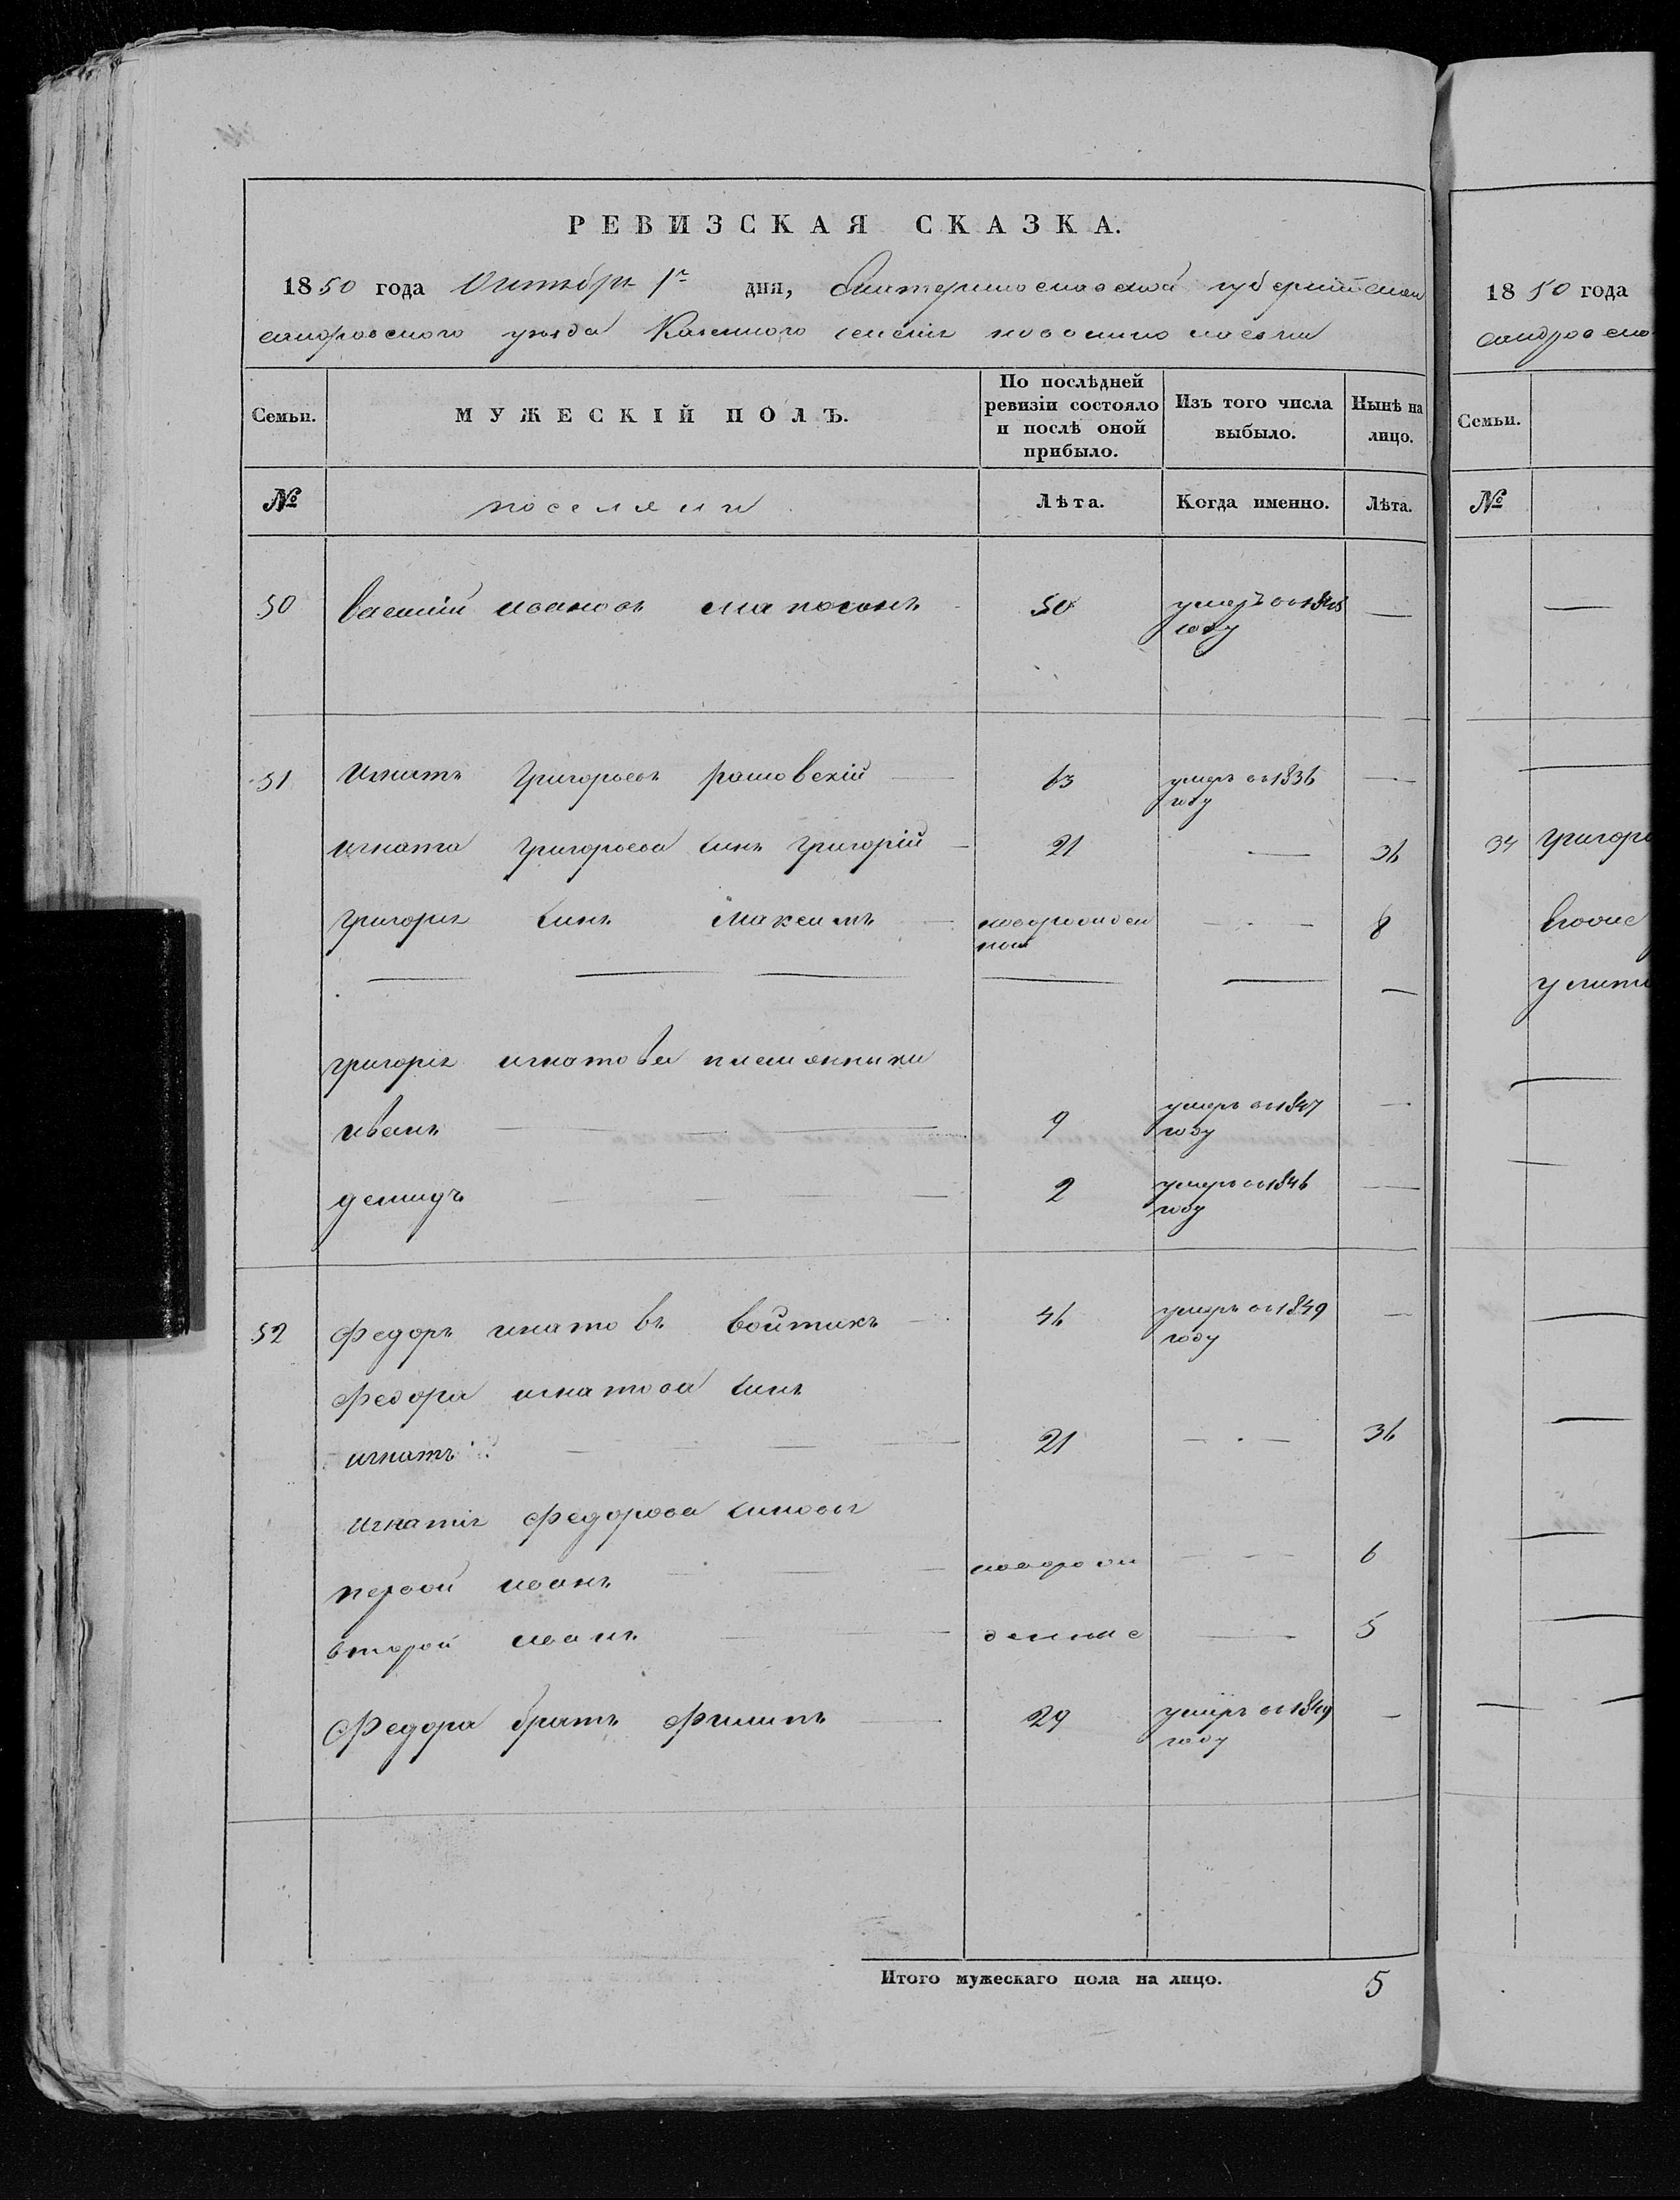 РЕВИЗСКАЯ СКАЗКА.
1850 года Октября 1го дня, Екатеринославской губерніи Алек
сандровского уезда Казенного селенія новониколаевки
Семьи. МУЖЕСКІЙ ПОЛЪ. По послѣдней ревизіи состояло и послѣ оной прибыло. Изъ того числа выбыло. Нынѣ на лицо.
№ поселяни Лѣта. Когда именно. Лѣта.
50 василій ивановъ 50 умеръ въ 1848 —
году
51 Игнатъ Григорьевъ рашовскій — 63 умеръ въ 1836 —
году
игната Григорьева синъ Григорій — 21 — 36
Григорія синъ Максимъ — новорожден — 8
ной
григорія игнатова племянники
иванъ — 9 умеръ въ 1847 —
году
демидъ — 2 умеръ въ 1846 —
году
52 Федоръ игнатовъ войтикъ — 46 умеръ въ 1849 —
году
Федора игнатова синъ
игнатъ — 21 — 36
Игнатія Федорова синовя
первой иванъ — новорож — 6
второй иванъ — денние — 5
Федора братъ Филипъ — 29 умеръ въ 1849 —
году
Итого мужескаго пола на лицо. 5
1850 года
сандровско
Семьи.
№
34 Григорь